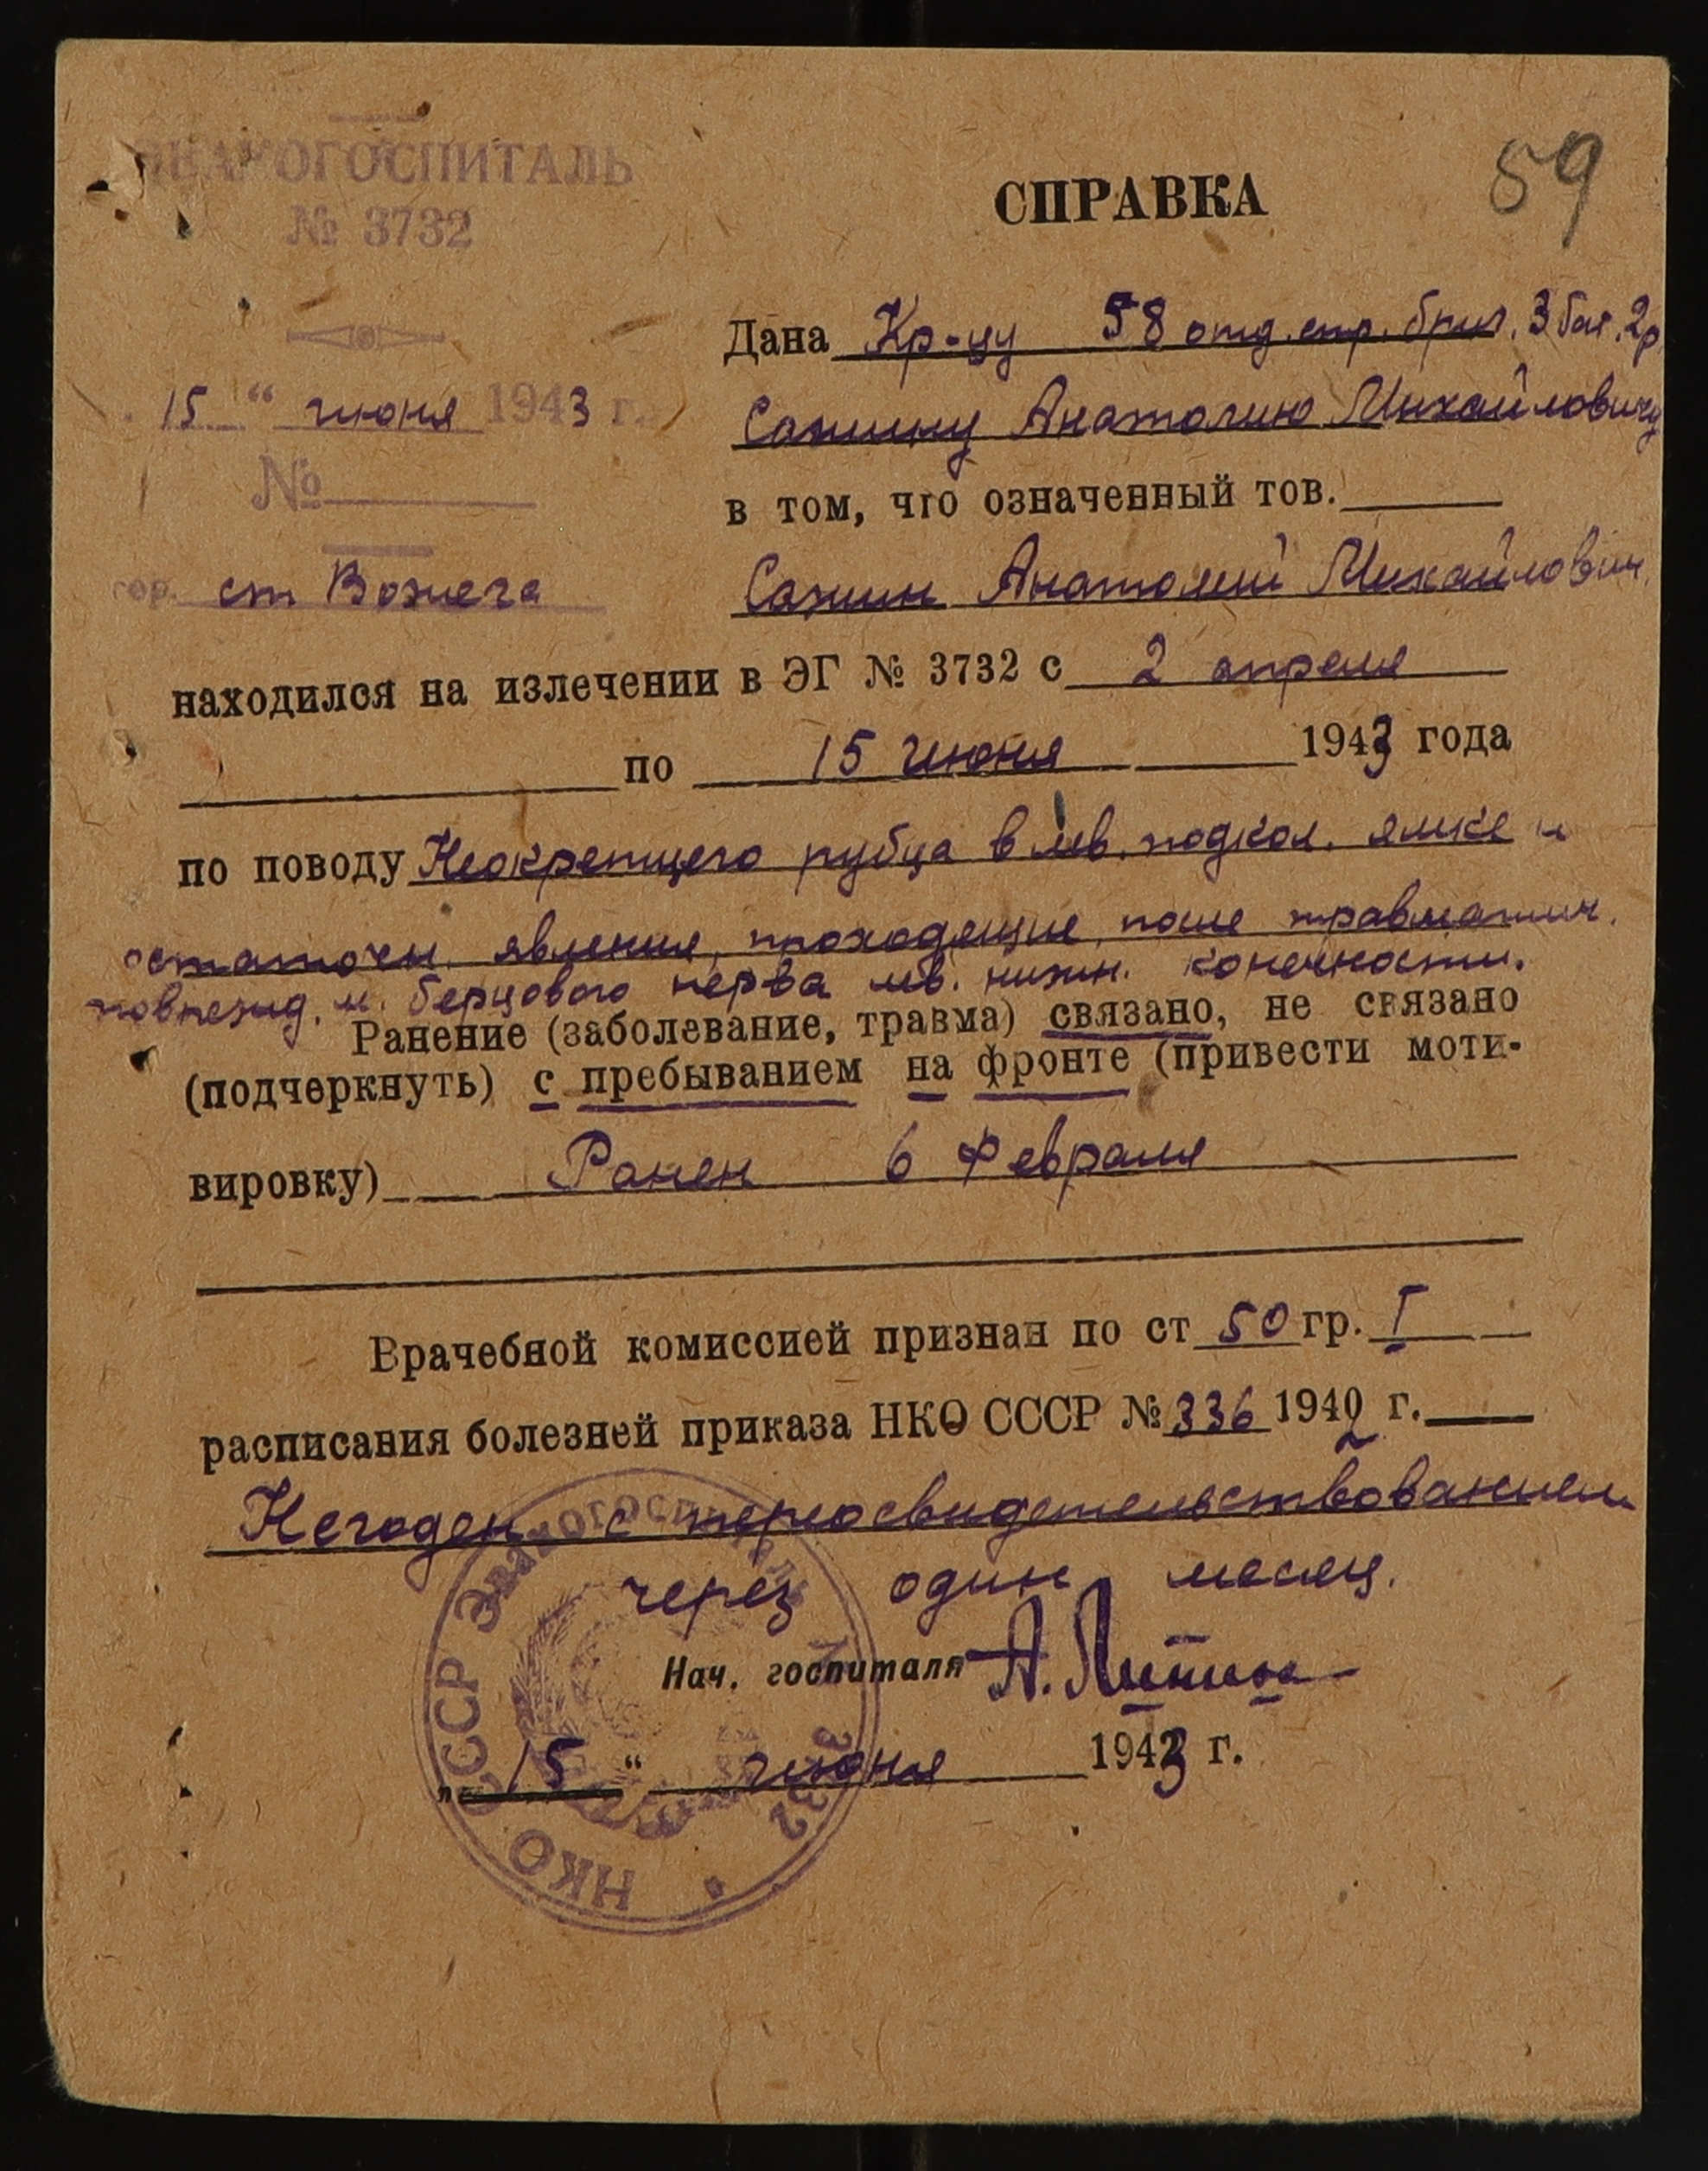 ЭВАКОГОСПИТАЛЬ
№ 3732
59
СПРАВКА
Дана Кр-цу 58 отд. стр. бриг. 3 бат. 2 р.
15 " июня 1943 г.
Сажину Анатолию Михайловичу
№
в том, что означенный тов.
гор. ст Вожега
Сажин Анатолий Михайлович
находился на излечении в ЭГ № 3732 с 2 апреля
по 15 июня 1943 года
по поводу Неокрепшего рубца в лев. подкол. ямке и
остаточн. явления, проходящие, после травматич.
поврежд. м. берцового нерва лев. нижн. конечности.
Ранение (заболевание, травма) связано, не связано
(подчеркнуть) с пребыванием на фронте (привести моти-
вировку) Ранен 6 февраля
Врачебной комиссией признан по ст 50 гр. I
расписания болезней приказа НКО СССР № 336 1942 г.
Негоден с переосвидетельствованием
через один месяц.
Нач. госпиталя
„ 15 " июня 1943 г.
НКО СССР Эвакогоспиталь № 3732